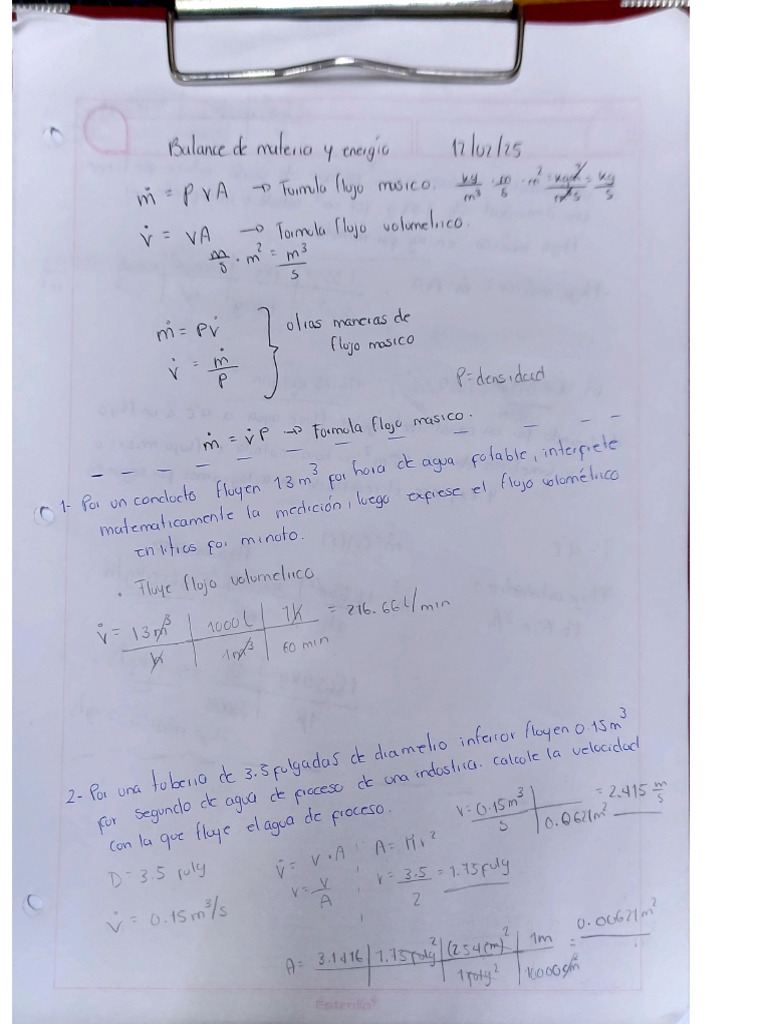 Balance de materia y energía 12/02/25
ṁ = ρVA → Formula flujo masico. kg/m³ · m/s · m² = kgm³/m³s = kg/s
v̇ = VA → Formula flujo volumetrico.
m/s · m² = m³/s
ṁ = ρv̇ } otras maneras de
v̇ = ṁ/ρ flujo masico
ρ = densidad
ṁ = v̇ρ → Formula flujo masico.
1- Por un conducto fluyen 13m³ por hora de agua potable, interprete
matematicamente la medición, luego exprese el flujo volométrico
en litros por minuto.
. Fluye flujo volumetrico
v̇ = 13m³/h | 1000L/1m³ | 1h/60 min = 216.66L/min
2- Por una tuberia de 3.5 pulgadas de diametro inferior fluyen 0.15m³
por segundo de agua de proceso de una indostria. calcule la velocidad
con la que fluye el agua de proceso.
V = 0.15m³/s | /0.0621m² = 2.415 m/s
D = 3.5 pulg
v̇ = V · A
A = πr²
v̇ = 0.15m³/s
V = v/A
r = 3.5/2 = 1.75pulg
A = 3.1416 | 1.75pulg² | (2.54cm)²/1pulg² | 1m/10000cm² = 0.00621m²
Estrella